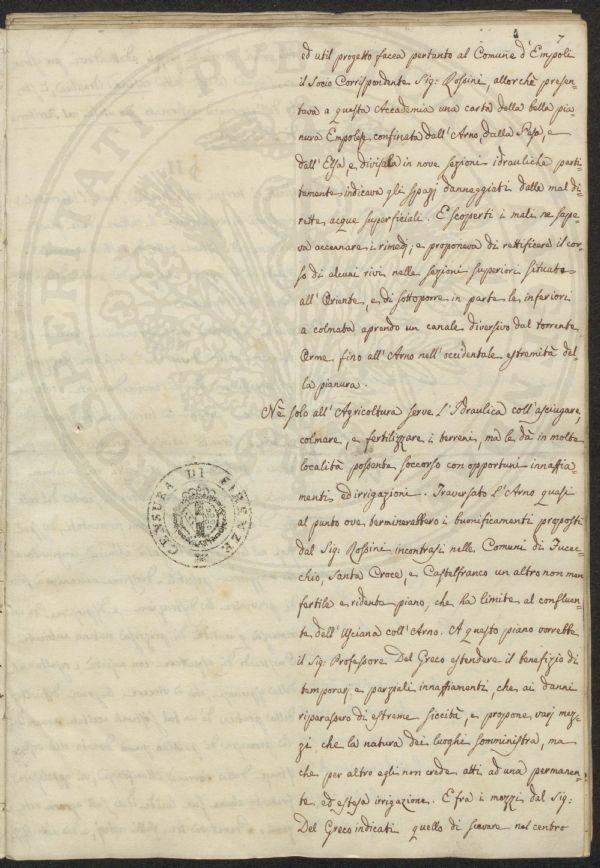 7
ed util progetto facea pertanto al Comune d'Empoli
il Socio Corrispondente Sig: Rossini, allorchè presen-
tava a questa Accademia una carta della bella pia-
nura Empolese confinata dall'Arno, dalla Pesa, e
dall'Elsa, e divisala in nove sezioni idrauliche parti-
tamente indicava gli spazj danneggiati dalle mal di-
rette acque superficiali. E scoperti i mali ne sape-
va accennare i rimedj; e proponeva di rettificare il cor-
so di alcuni rivi nelle sezioni superiori situate
all'Oriente, e di sottoporre in parte le inferiori
a colmata aprendo un canale diversivo dal torrente
Orme fino all'Arno nell'occidentale estremità del-
la pianura.
Nè solo all'Agricoltura serve l'Idraulica coll'asciugare,
colmare, e fertilizzare i terreni, ma le dà in molte
località possente soccorso con opportuni innaffia-
menti ed irrigazioni. Traversato l'Arno quasi
al punto ove terminerebbero i bonificamenti proposti
dal Sig: Rossini incontrasi nelle Comuni di Fucec-
chio, Santa Croce, e Castelfranco un altro non men
fertile e ridente piano, che ha limite al confluen-
te dell'Usciana coll'Arno. A questo piano vorrebbe
il Sig: Professore Del Greco estendere il benefizio di
temporarj e parziali innaffiamenti, che ai danni
riparassero di estreme siccità, e propone varj mez-
zi che la natura dei luoghi somministra, ma
che per altro egli non crede atti ad una permanen-
te ed estesa irrigazione. E fra i mezzi dal Sig:
Del Greco indicati quello di scavare nel centro
CENSURA DI FIRENZE